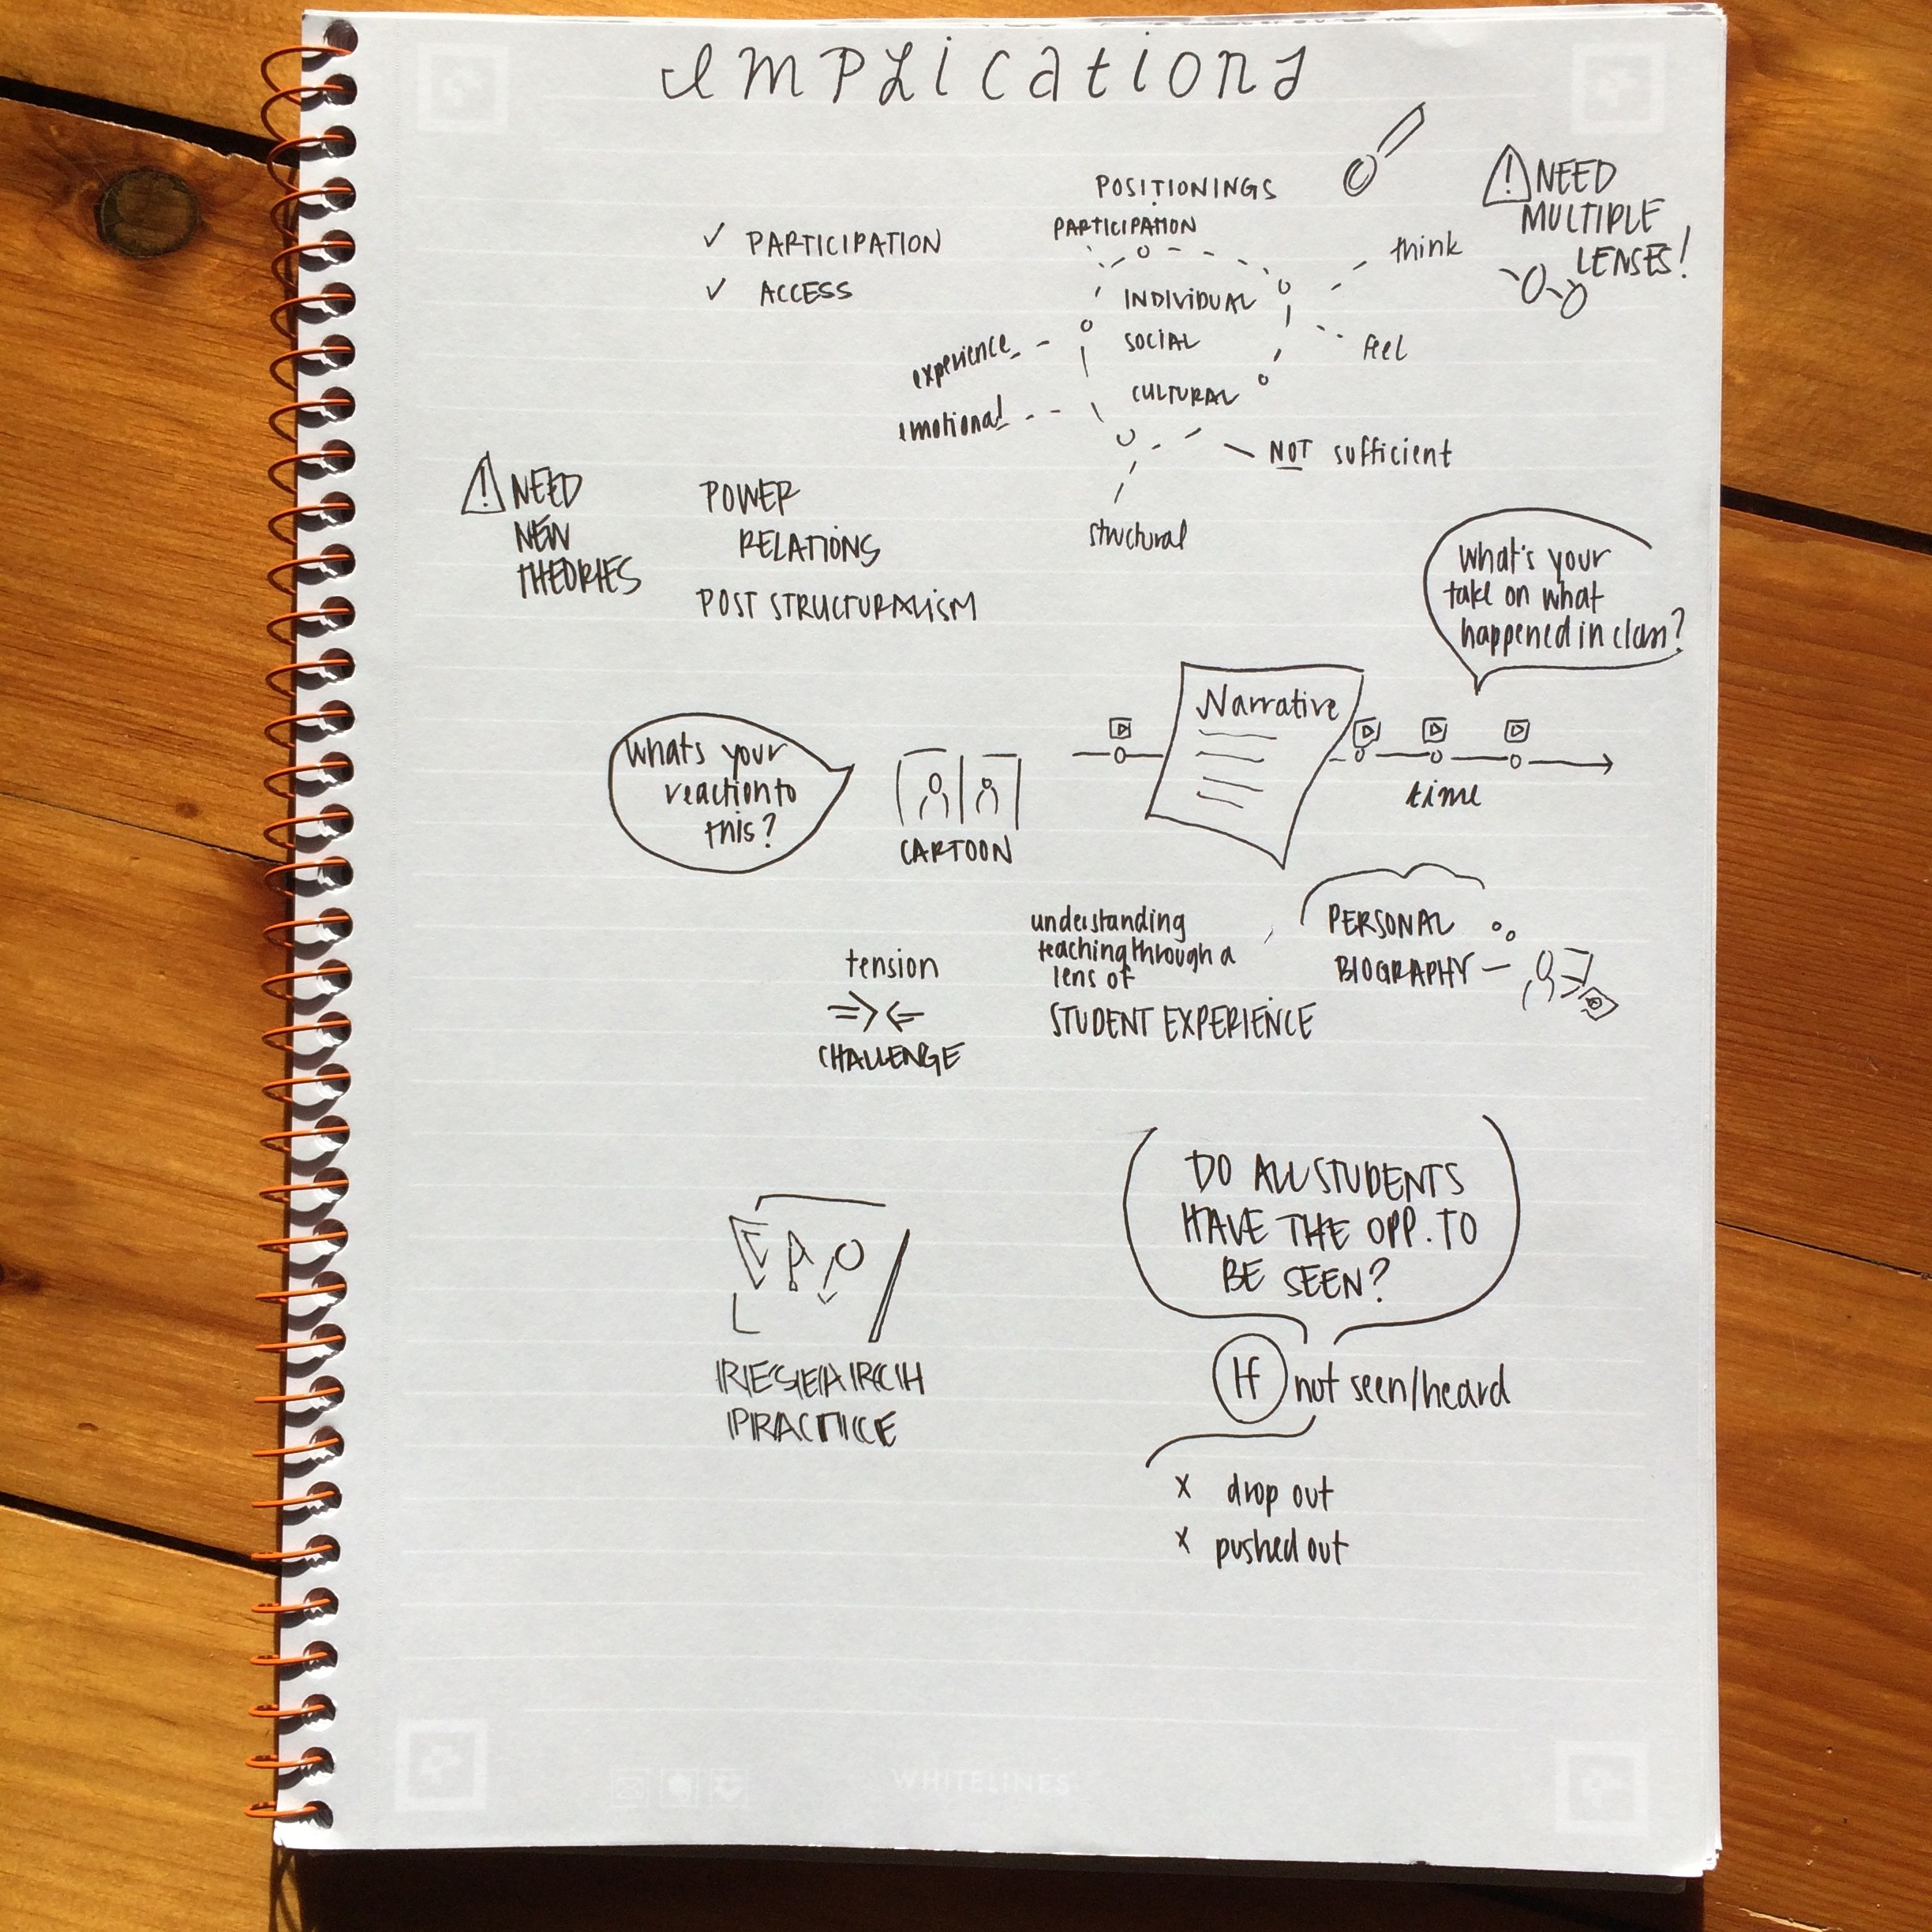 implications
✓ PARTICIPATION
✓ ACCESS
POSITIONINGS
PARTICIPATION
INDIVIDUAL
SOCIAL
CULTURAL
think
feel
experience
emotional
NOT sufficient
structural
NEED
MULTIPLE
LENSES!
NEED
NEW
THEORIES
POWER
RELATIONS
POST STRUCTURALISM
What's your
take on what
happened in class?
whats your
reaction to
this?
CARTOON
Narrative
time
tension
CHALLENGE
understanding
teaching through a
lens of
STUDENT EXPERIENCE
PERSONAL
BIOGRAPHY
RESEARCH
PRACTICE
DO ALL STUDENTS
HAVE THE OPP. TO
BE SEEN?
If not seen/heard
x drop out
x pushed out
WHITELINES